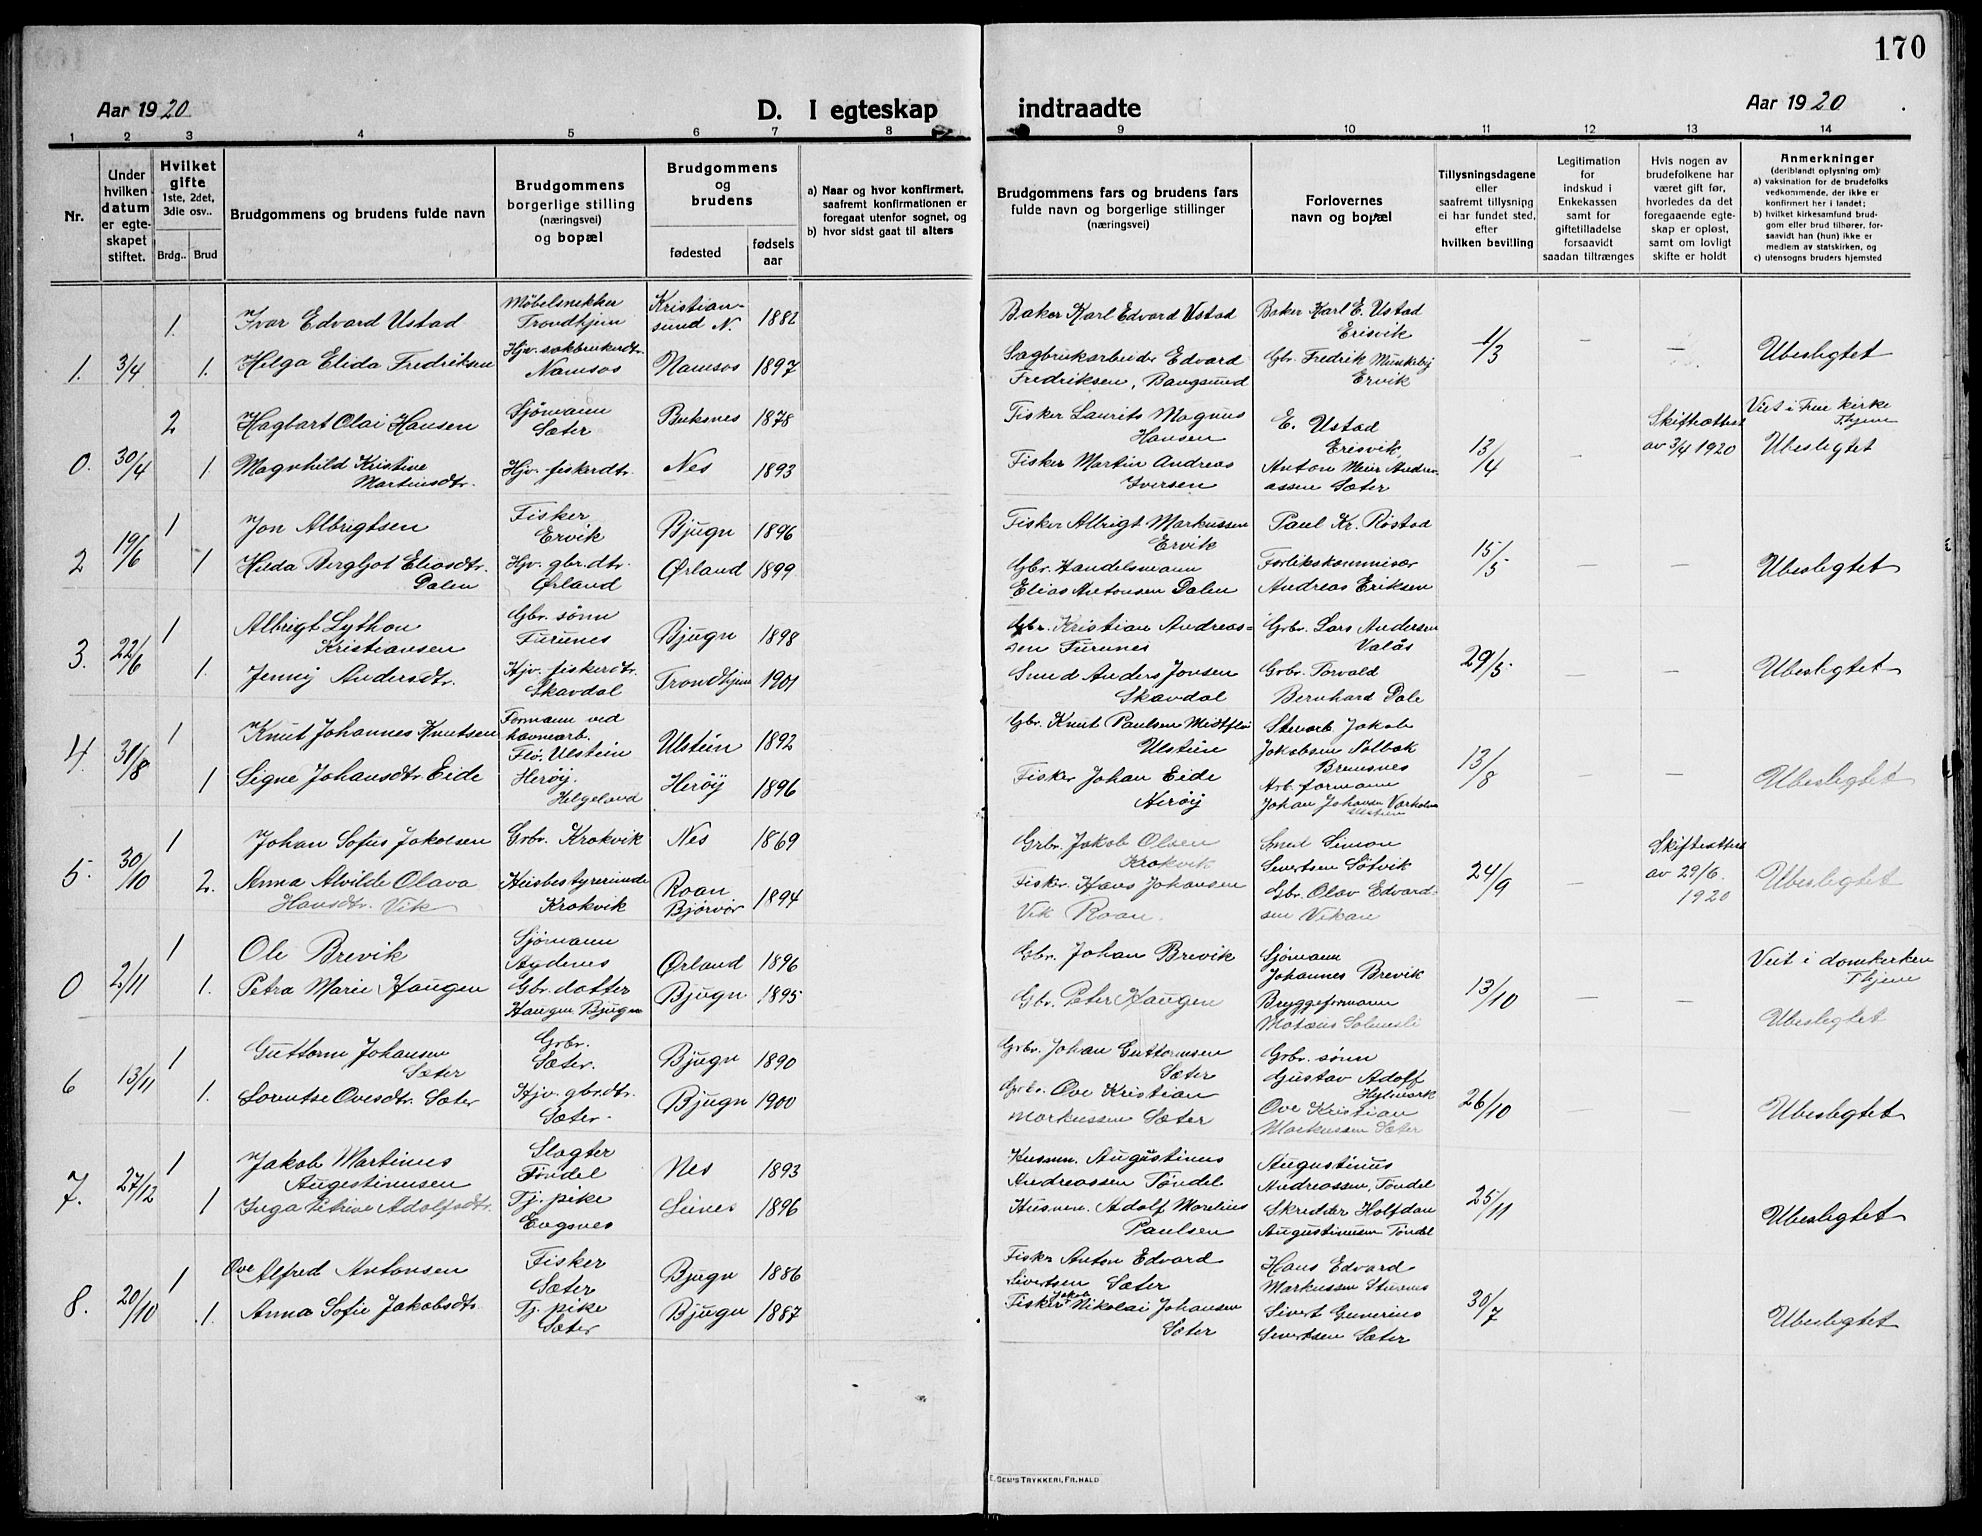 170
Aar 1920
D. I egteskap
indtraadte
Aar 1920
1 2 3 4 5 6 7 8 9 10 11 12 13 14
Nr.
Under hvilken datum er egteskapet stiftet.
Hvilket gifte 1ste, 2det, 3die osv..
Brdg.. Brud
Brudgommens og brudens fulde navn
Brudgommens borgerlige stilling (næringsvei) og bopæl
Brudgommens og brudens
fødested
fødsels aar
a) Naar og hvor konfirmert, saafremt konfirmationen er foregaat utenfor sognet, og
b) hvor sidst gaat til alters
Brudgommens fars og brudens fars fulde navn og borgerlige stillinger (næringsvei)
Forlovernes navn og bopæl
Tillysningsdagene eller saafremt tillysning ei har fundet sted, efter hvilken bevilling
Legitimation for indskud i Enkekassen samt for giftetilladelse forsaavidt saadan tiltrænges
Hvis nogen av brudefolkene har været gift før, hvorledes da det foregaaende egteskap er opløst, samt om lovligt skifte er holdt
Anmerkninger (deriblandt oplysning om): a) vaksination for de brudefolks vedkommende, der ikke er konfirmert her i landet; b) hvilket kirkesamfund brudgom eller brud tilhører, forsaavidt han (hun) ikke er medlem av statskirken, og c) utensogns bruders hjemsted
1. 3/4
1. Ivar Edvard Ustad
Møbelsnekker Trondhjem
Kristiansund N. 1882
Baker Karl Edvard Ustad
Baker Karl E. Ustad Erisvik
1. Helga Elida Fredriksen
Hjv. sakbrukerdtr. Namsos
Namsos 1897
Sagbruksarbeider Edvard Fredriksen, Bangsund
Gbr. Fredrik Ervik
1/3 - - Ubeslegtet
0. 30/4
2 Hagbart Olai Hansen
Sjømann Sæter
Buksnes 1878
Fisker Laurits Magnus Hansen
E. Ustad Erisvik
1 Magnhild Kristine Martinsdtr.
Hjv. fiskerdtr.
Nes 1893
Fisker Martin Andreas Iversen
Anton Meier Andreassen Sæter
13/14 - Skifteattest av 3/4 1920
Viet i Frue kirke Thjem
Ubeslegtet
2 19/6
1 Jon Albrigtsen
Fisker Ervik
Bjugn 1896
Fisker Albrigt Markussen Ervik
Paul Kr. Røstad
1 Hilda Bergljot Eliasdtr. Dalen
Hjv. gbr.dtr. Ørland
Ørland 1899
Gbr. Handelsmann Elias Antonsen Dalen
Forlikskommisær Andreas Eriksen
15/5 - - Ubeslegtet
3. 22/6
1 Albrigt Lython Kristiansen
Gbr. sønn Furunes
Bjugn 1898
Gbr. Kristian Andreassen Furunes
Grbr. Lars Andersen Valås
1. Jenny Andersdtr.
Hjv. fiskerdtr. Skavdal
Trondhjem 1901
Smed Anders Jonsen Skavdal
Grbr. Torvald Bernhard Dale
29/5. - - Ubeslegtet
4. 31/8
1 Knut Johannes Knutsen
Formann ved havnearb. Flø, Ulstein
Ulstein 1892
Gbr. Knut Paulsen Midtflø Ulstein
Stenarb. Jakob Jakobsen Solbak Bremsnes
1 Signe Johansdtr. Eide
Herøy. Helgeland
Herøy 1896
Fisker Johan Eide Herøy
Arb. formann Johan Johansen Varholm Ulstein
13/8 - - Ubeslegtet
5. 30/10
1 Johan Sofus Jakobsen
Grbr. Krokvik
Nes 1869
Grbr. Jakob Olsen Krokvik
Smed Simon Sivertsen Sølvik
2. Anna Alvilde Olava Hansdtr. Vik
Husbestyrerinde Krokvik
Roan Bjørvør 1894
Fisker Hans Johansen Vik Roan.
Gbr. Olav Edvardsen Vikan
24/9 - Skifteattest av 29/6. 1920
Ubeslegtet
0 2/11
1 Ole Brevik
Sjømann Agdenes
Ørland 1896
Gbr. Johan Brevik
Sjømann Johannes Brevik
1. Petra Marie Haugen
Gbr. datter Haugen Bjugn
Bjugn 1895
Gbr. Peter Haugen
Bryggeformann
13/10 - -
Viet i domkirken Thjem
Ubeslegtet
6 13/11
1 Guttorm Johansen Sæter
Grbr. Sæter.
Bjugn 1890
Grbr. Johan Guttormsen Sæter
Grbr. sønn Gustav Adolf Hylmark
1. Lorentse Ovesdtr. Sæter
Hjv. gbr.dtr. Sæter.
Bjugn 1900
Grbr. Ove Kristian Markussen Sæter
Ove Kristian Markussen Sæter
26/10 - - Ubeslegtet
7. 27/12
1 Jakob Martinus Augestinusen
Slagter Tøndel
Nes 1893
Husmn. Augustinus Andreassen Tøndel
Augustinus Andreassen, Tøndel
1 Inga Petrine Adolfsdtr.
Tj. pike Engsnes
1896
Husmn. Adolf Morelius Paulsen
Skredder Halfdan Augustinusen Tøndel
25/11 Ubeslegtet
8. 20/10
1 Ove Alfred Antonsen
Fisker Sæter
Bjugn 1886
Fisker Anton Edvard Sivertsen Sæter
Hans Edvard Markussen
1. Anna Sofie Jakobsdtr.
Tj. pike Sæter
Bjugn 1887
Fisker Jakob Nikolai Johansen Sæter
Sivert Guverius Sivertsen Sæter
30/7 Ubeslegtet
E. SEM'S TRYKKERI, FR. HALD